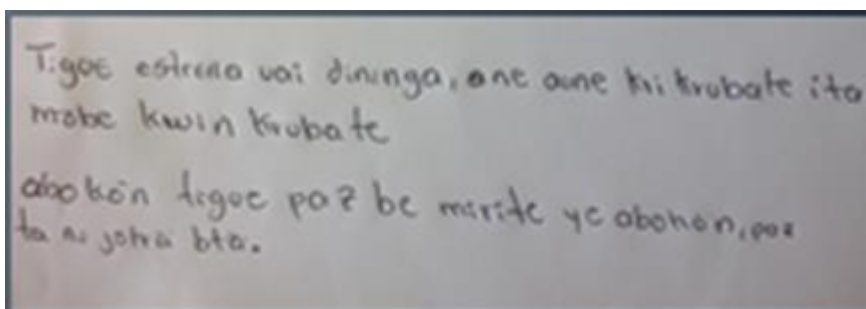 Tigoe estrena vai dininga, one aune kri krubate ita
mobe kwin krubate
abokön tigoe paz be mirite ye abokon, paz
ta ni jotra bta.